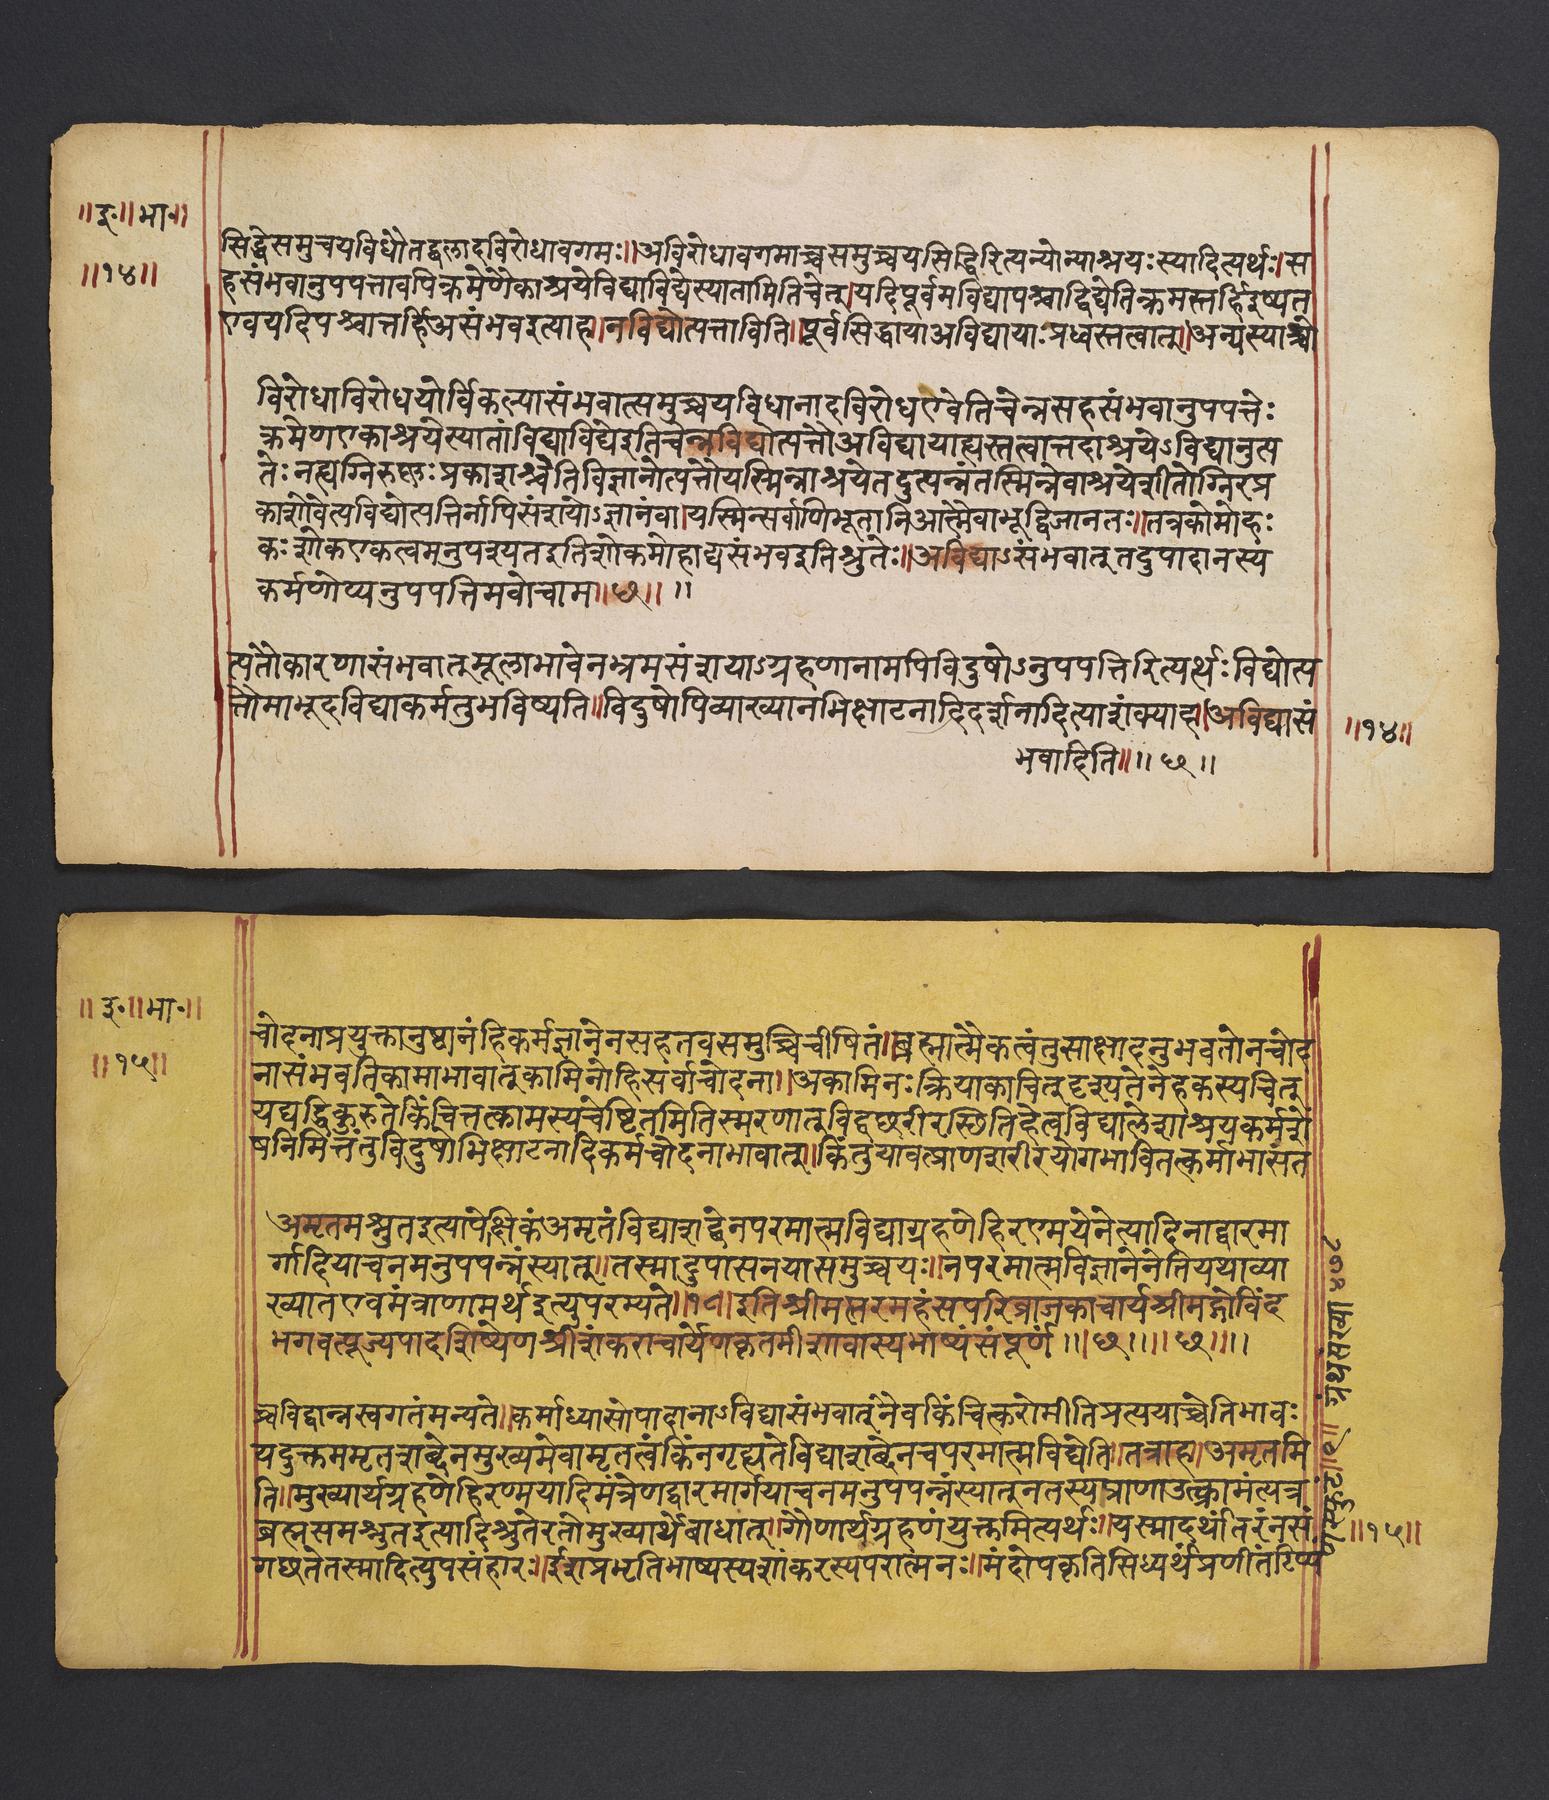 ॥ई॰॥भा॰॥
॥१४॥
सिद्धेसमुचयविधौतद्बलादविरोधावगमः॥अविरोधावगमाच्चसमुच्चयसिद्धिरित्यन्योन्याश्रयःस्यादित्यर्थः।स
हसंभवानुपपत्तावपिक्रमेणैकाश्रयेविद्याविद्येस्यातामितिचेत्।यदिपूर्वमविद्यापश्चाद्विद्येतिक्रमस्तर्हिइष्यत
एवयदिपश्चात्तर्हिअसंभवइत्याह।नविद्योत्पत्ताविति॥पूर्वसिद्धायाअविद्यायाःप्रध्वस्तत्वात्॥अन्यस्याश्चो
विरोधाविरोधयोर्विकल्पासंभवात्समुच्चयविधानादविरोधएवेतिचेन्नसहसंभवानुपपत्तेः
क्रमेणएकाश्रयेस्यातांविद्याविद्येइतिचेन्नविद्योत्पत्तौअविद्यायाह्यस्तत्वात्तदाश्रयेऽविद्यानुत्प
तेःनह्यग्निरुष्णःप्रकाशश्चेतिविज्ञानोत्पत्तौयस्मिन्नाश्रयेतदुत्पन्नंतस्मिन्नेवाश्रयेशीतोग्निरप्र
काशोवेत्यविद्योत्पत्तिर्नापिसंशयोऽज्ञानंवा।यस्मिन्सर्वाणिभूतानिआत्मैवाभूद्विजानतः॥तत्रकोमोहः
कःशोकएकत्वमनुपश्यतइतिशोकमोहाद्यसंभवइतिश्रुतेः॥अविद्याऽसंभवात्तदुपादानस्य
कर्मणोप्यनुपपत्तिमवोचाम॥छ॥ ॥
त्पंतौकारणासंभवात्मूलाभावेनभ्रमसंशयाऽग्रहणानामपिविदुषोऽनुपपत्तिरित्यर्थःविद्योत्प
त्तौमाभूदविद्याकर्मतुभविष्यति॥विदुषोपिव्याख्यानभिक्षाटनादिदर्शनादित्याशंक्याह॥अविद्यासं
भवादिति॥॥छ॥
॥१४॥
॥ई॰॥भा॰॥
॥१५॥
चोदनाप्रयुक्तानुष्ठानंहिकर्मज्ञानेनसहतवसमुच्चिचीषितं॥ब्रह्मात्मैकत्वंतुसाक्षादनुभवतोनचोद
नासंभवतिकामाभावात्कामिनोहिसर्वाचोदना॥अकामिनःक्रियाकाचित्दृश्यतेनेहकस्यचित्
यद्यद्धिकुरुतेकिंचित्तत्कामस्यचेष्टितमितिस्मरणात्विद्वछरीरस्छितिहेत्वविद्यालेशाश्रयकर्मशे
षनिमित्तंतुविदुषोभिक्षाटनादिकर्मचोदनाभावात्॥किंतुयावत्प्राणशरीरयोगभावितत्कर्माभासंत
अमृतमश्नुतइत्यापेक्षिकंअमृतंविद्याशब्देनपरमात्मविद्याग्रहणेहिरण्मयेनेत्यादिनाद्वारमा
र्गादियाचनमनुपपन्नंस्यात्॥तस्मादुपासनयासमुच्चयः॥नपरमात्मविज्ञानेनेतियथाव्या
ख्यातएवमंत्राणामर्थइत्युपरम्यते॥१८॥इतिश्रीमत्परमहंसपरिव्राजकाचार्यश्रीमद्गोविंद
भगवत्पूज्यपादशिष्येणश्रीशंकराचार्येणकृतमीशावास्यभाष्यंसंपूर्णं॥॥छ॥॥छ॥॥
च्चविद्वान्नस्वगतंमन्यते॥कर्माध्यासोपादानाऽविद्यासंभवात्नैवकिंचित्करोमीतिप्रत्ययाच्चेतिभावः
यदुक्तममृतशब्देनमुख्यमेवामृतत्वंकिंनगृह्यतेविद्याशब्देनचपरमात्मविद्येति॥तत्राह॥अमृतमि
ति॥मुख्यार्थग्रहणेहिरण्मयादिमंत्रेणद्वारमार्गयाचनमनुपपन्नंस्यात्नतस्यप्राणाउत्क्रामंत्यत्र
ब्रह्मसमश्नुतइत्यादिश्रुतेरतोमुख्यार्थेबाधात्॥गौणार्थग्रहणंयुक्तमित्यर्थः॥यस्मादर्थांतरंनसं
गछतेतस्मादित्युपसंहारः॥ईशप्रभृतिभाष्यस्यशांकरस्यपरात्मनः॥मंदोपकृतिसिध्यर्थंप्रणीतंटिप्प
॥१५॥
ग्रंथसंख्या